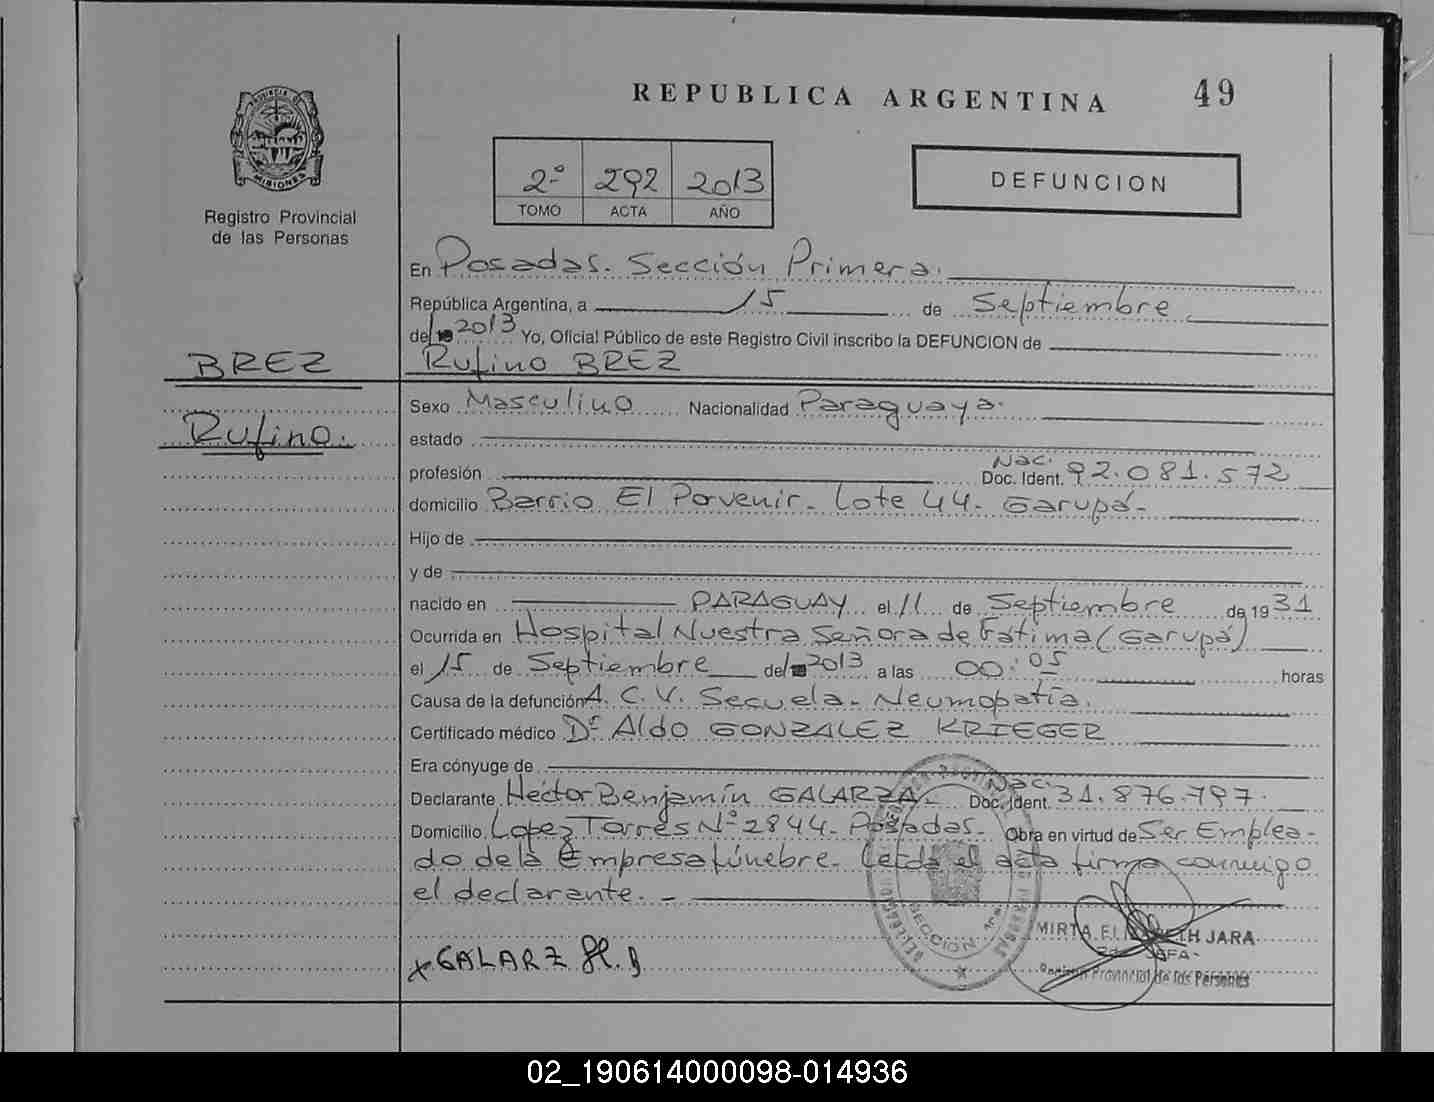 REPUBLICA ARGENTINA 49
PROVINCIA DE
MISIONES
Registro Provincial
de las Personas
2º 292 2013
TOMO ACTA AÑO
DEFUNCION
En Posadas. Sección Primera.
República Argentina, a 15 de Septiembre
de 2013 Yo, Oficial Público de este Registro Civil inscribo la DEFUNCION de
BREZ
Rufino BREZ
Rufino.
Sexo Masculino Nacionalidad Paraguaya.
estado
profesión Nac. Doc. Ident. 92.081.572
domicilio Barrio El Porvenir. Lote 44. Garupá.
Hijo de
y de
nacido en PARAGUAY el 11 de Septiembre de 1931
Ocurrida en Hospital Nuestra Señora de Fátima (Garupá)
el 15 de Septiembre de 2013 a las 00:05 horas
Causa de la defunción A. C. V. Secuela. Neumopatía.
Certificado médico Dr. Aldo GONZALEZ KRIEGER
Era cónyuge de
Declarante Héctor Benjamín GALARZA. Nac. Doc. Ident. 31.876.797.
Domicilio Lopez Torres Nº 2844. Posadas. Obra en virtud de Ser Emplea-
do de la Empresa fúnebre. Leída el acta firma conmigo
el declarante. -
x GALARZ H. B
SECCION 1ra.
MIRTA ELIZABETH JARA
Registro Provincial de las Personas
02_190614000098-014936